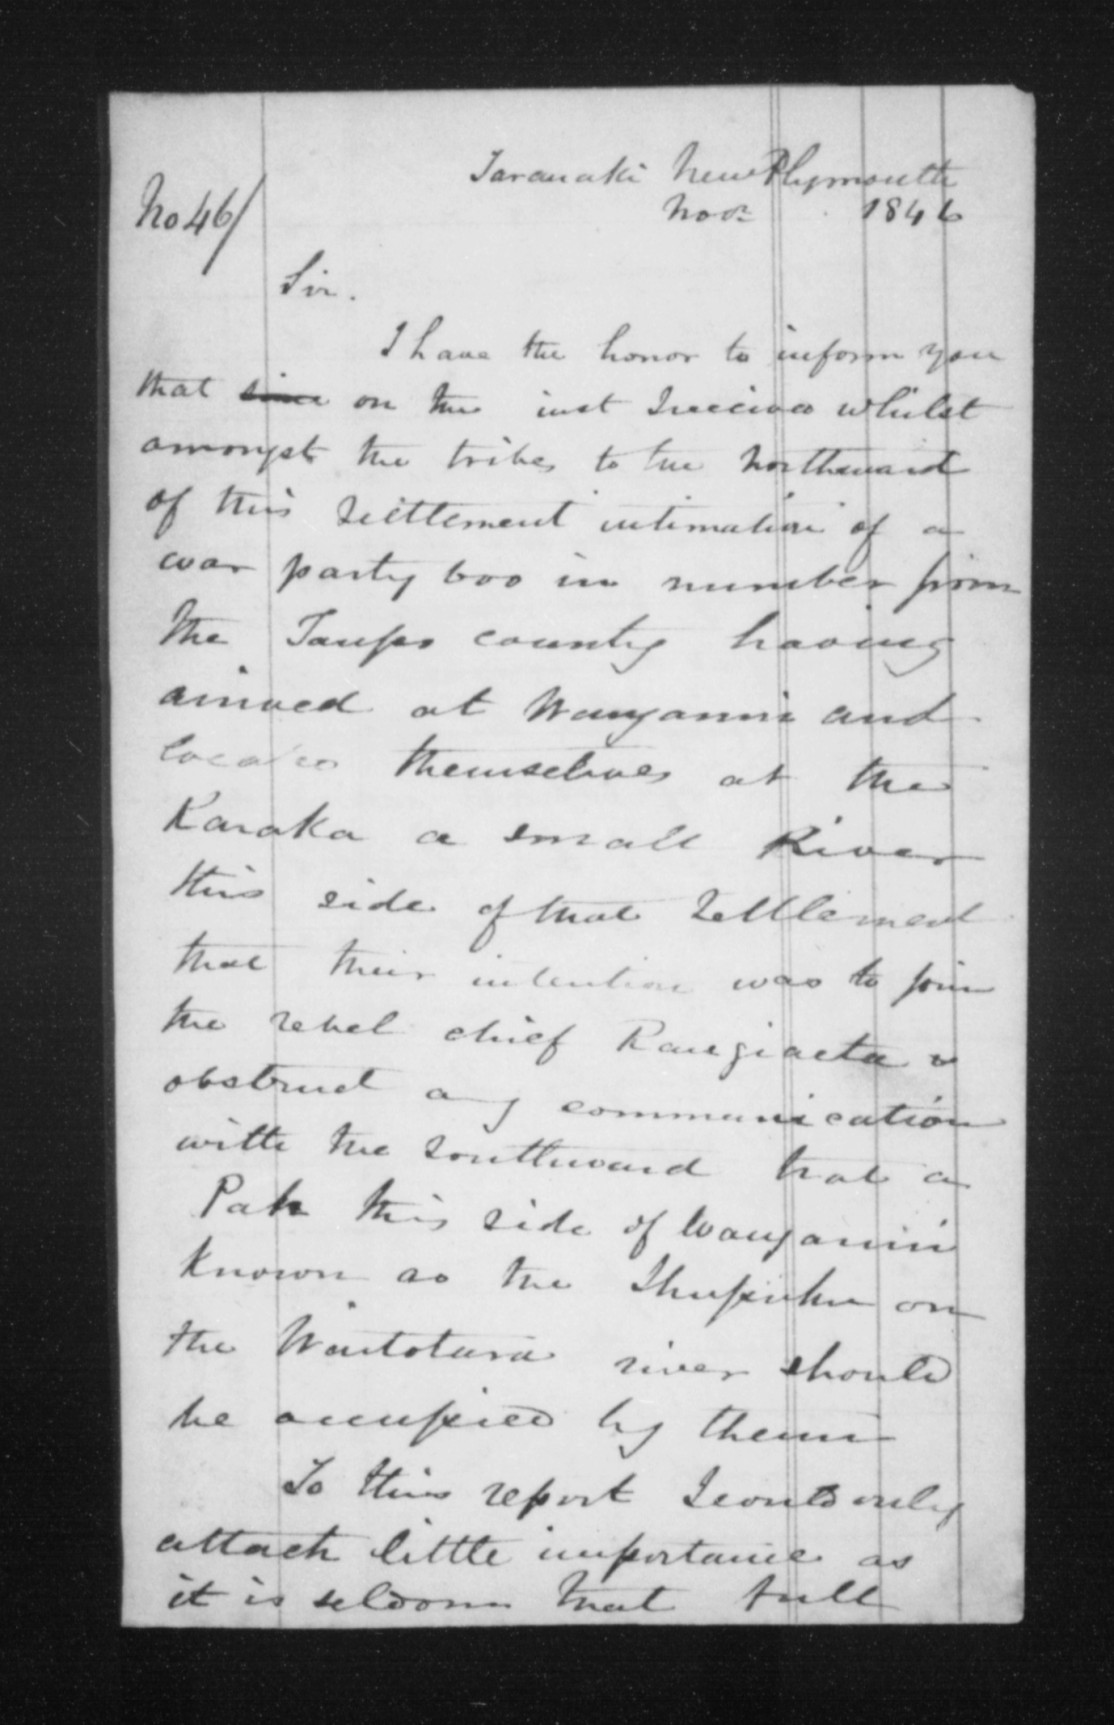 Taranaki New Plymouth
No 46/
Novr 1846
Sir.
I have the honor to inform you
that since on the inst I received whilst
amongst the tribes to the Northward
of this settlement intimation of a
war party 600 in number from
the Taupo country having
arrived at Wanganui and
located themselves at the
Karaka a small River
this side of that settlement
that their intention was to join
the rebel chief Rangiaeta &
obstruct any communication
with the southward that a
Pah this side of Wanganui
known as the Ihupuku on
the Waitotara river should
be occupied by them
To this report I could only
attach little importance as
it is seldom that full